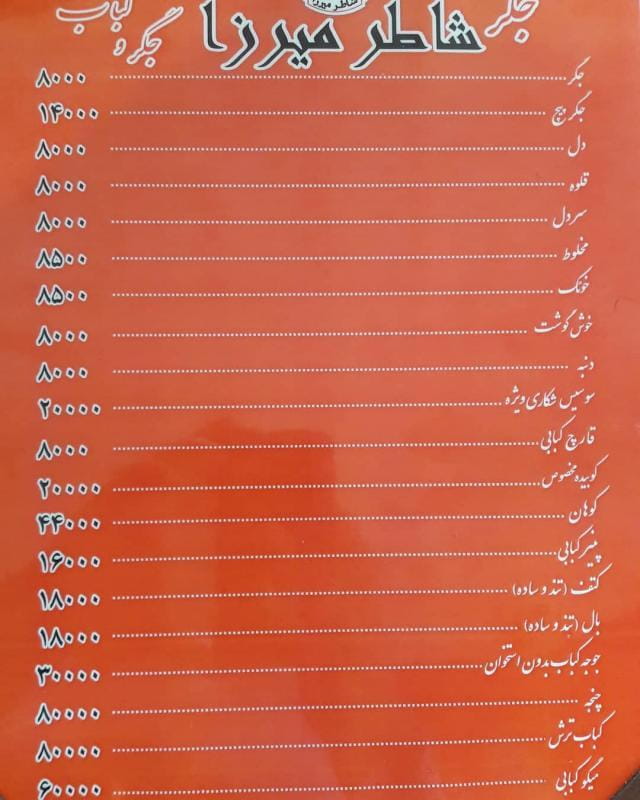 جگر شاطر میرزا جگر و کباب
شاطر میرزا
جگر ۸۰۰۰
جگر پیچ ۱۴۰۰۰
دل ۸۰۰۰
قلوه ۸۰۰۰
سردل ۸۰۰۰
مخلوط ۸۵۰۰
خونک ۸۵۰۰
خوش گوشت ۸۰۰۰
دنبه ۸۰۰۰
سوسیس شکاری ویژه ۲۰۰۰۰
قارچ کبابی ۸۰۰۰
کوبیده مخصوص ۲۰۰۰۰
کوهان ۴۴۰۰۰
پنیر کبابی ۱۶۰۰۰
کتف (تند و ساده) ۱۸۰۰۰
بال (تند و ساده) ۱۸۰۰۰
جوجه کباب بدون استخوان ۳۰۰۰۰
چنجه ۸۰۰۰۰
کباب ترش ۸۰۰۰۰
میگو کبابی ۶۰۰۰۰